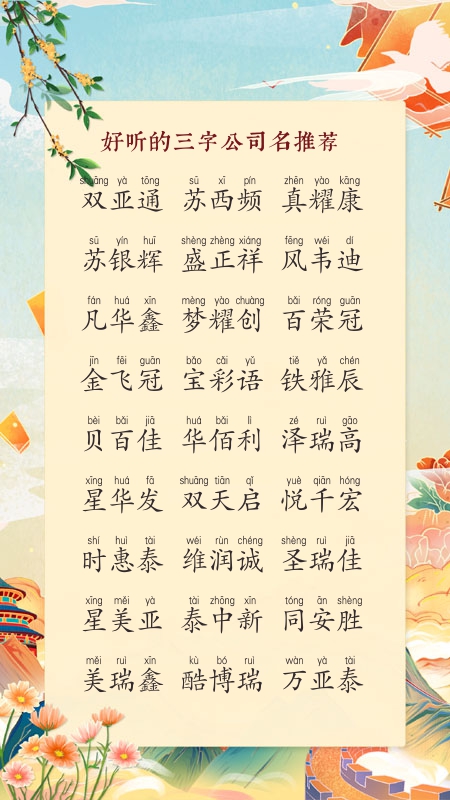 好听的三字公司名推荐
shuāng yà tōng sū xī pín zhēn yào kāng
双亚通 苏西频 真耀康
sū yín huī shèng zhèng xiáng fēng wéi dí
苏银辉 盛正祥 风韦迪
fán huá xīn mèng yào chuàng bǎi róng guān
凡华鑫 梦耀创 百荣冠
jīn fēi guān bǎo cǎi yǔ tiě yǎ chén
金飞冠 宝彩语 铁雅辰
bèi bǎi jiā huá bǎi lì zé ruì gāo
贝百佳 华佰利 泽瑞高
xīng huá fā shuāng tiān qǐ yuè qiān hóng
星华发 双天启 悦千宏
shí huì tài wéi rùn chéng shèng ruì jiā
时惠泰 维润诚 圣瑞佳
xīng měi yà tài zhōng xīn tóng ān shèng
星美亚 泰中新 同安胜
měi ruì xīn kù bó ruì wàn yà tài
美瑞鑫 酷博瑞 万亚泰